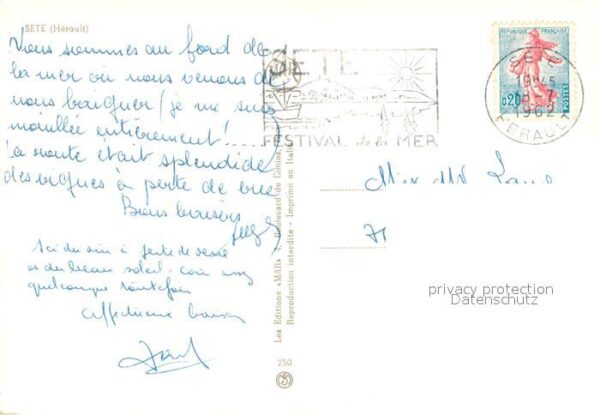 SETE (Hérault)
Nous sommes au bord de
la mer où nous venons de
nous baigner (je me suis
mouillée entièrement!....
la route était splendide
des vignes à perte de vue
Bons baisers
Ici du vin à perte de vue
et du beau soleil. coin assez
quelconque toutefois
affectueux baisers
Les Editions «MAR» 4, Boulevard de Cimiez,
Reproduction interdite - Imprimé en Italie
250
SETE
FESTIVAL de la MER
REPUBLIQUE FRANÇAISE
0,20
POSTES
SETE
18H45
8-7
1962
HERAULT
71
privacy protection
Datenschutz